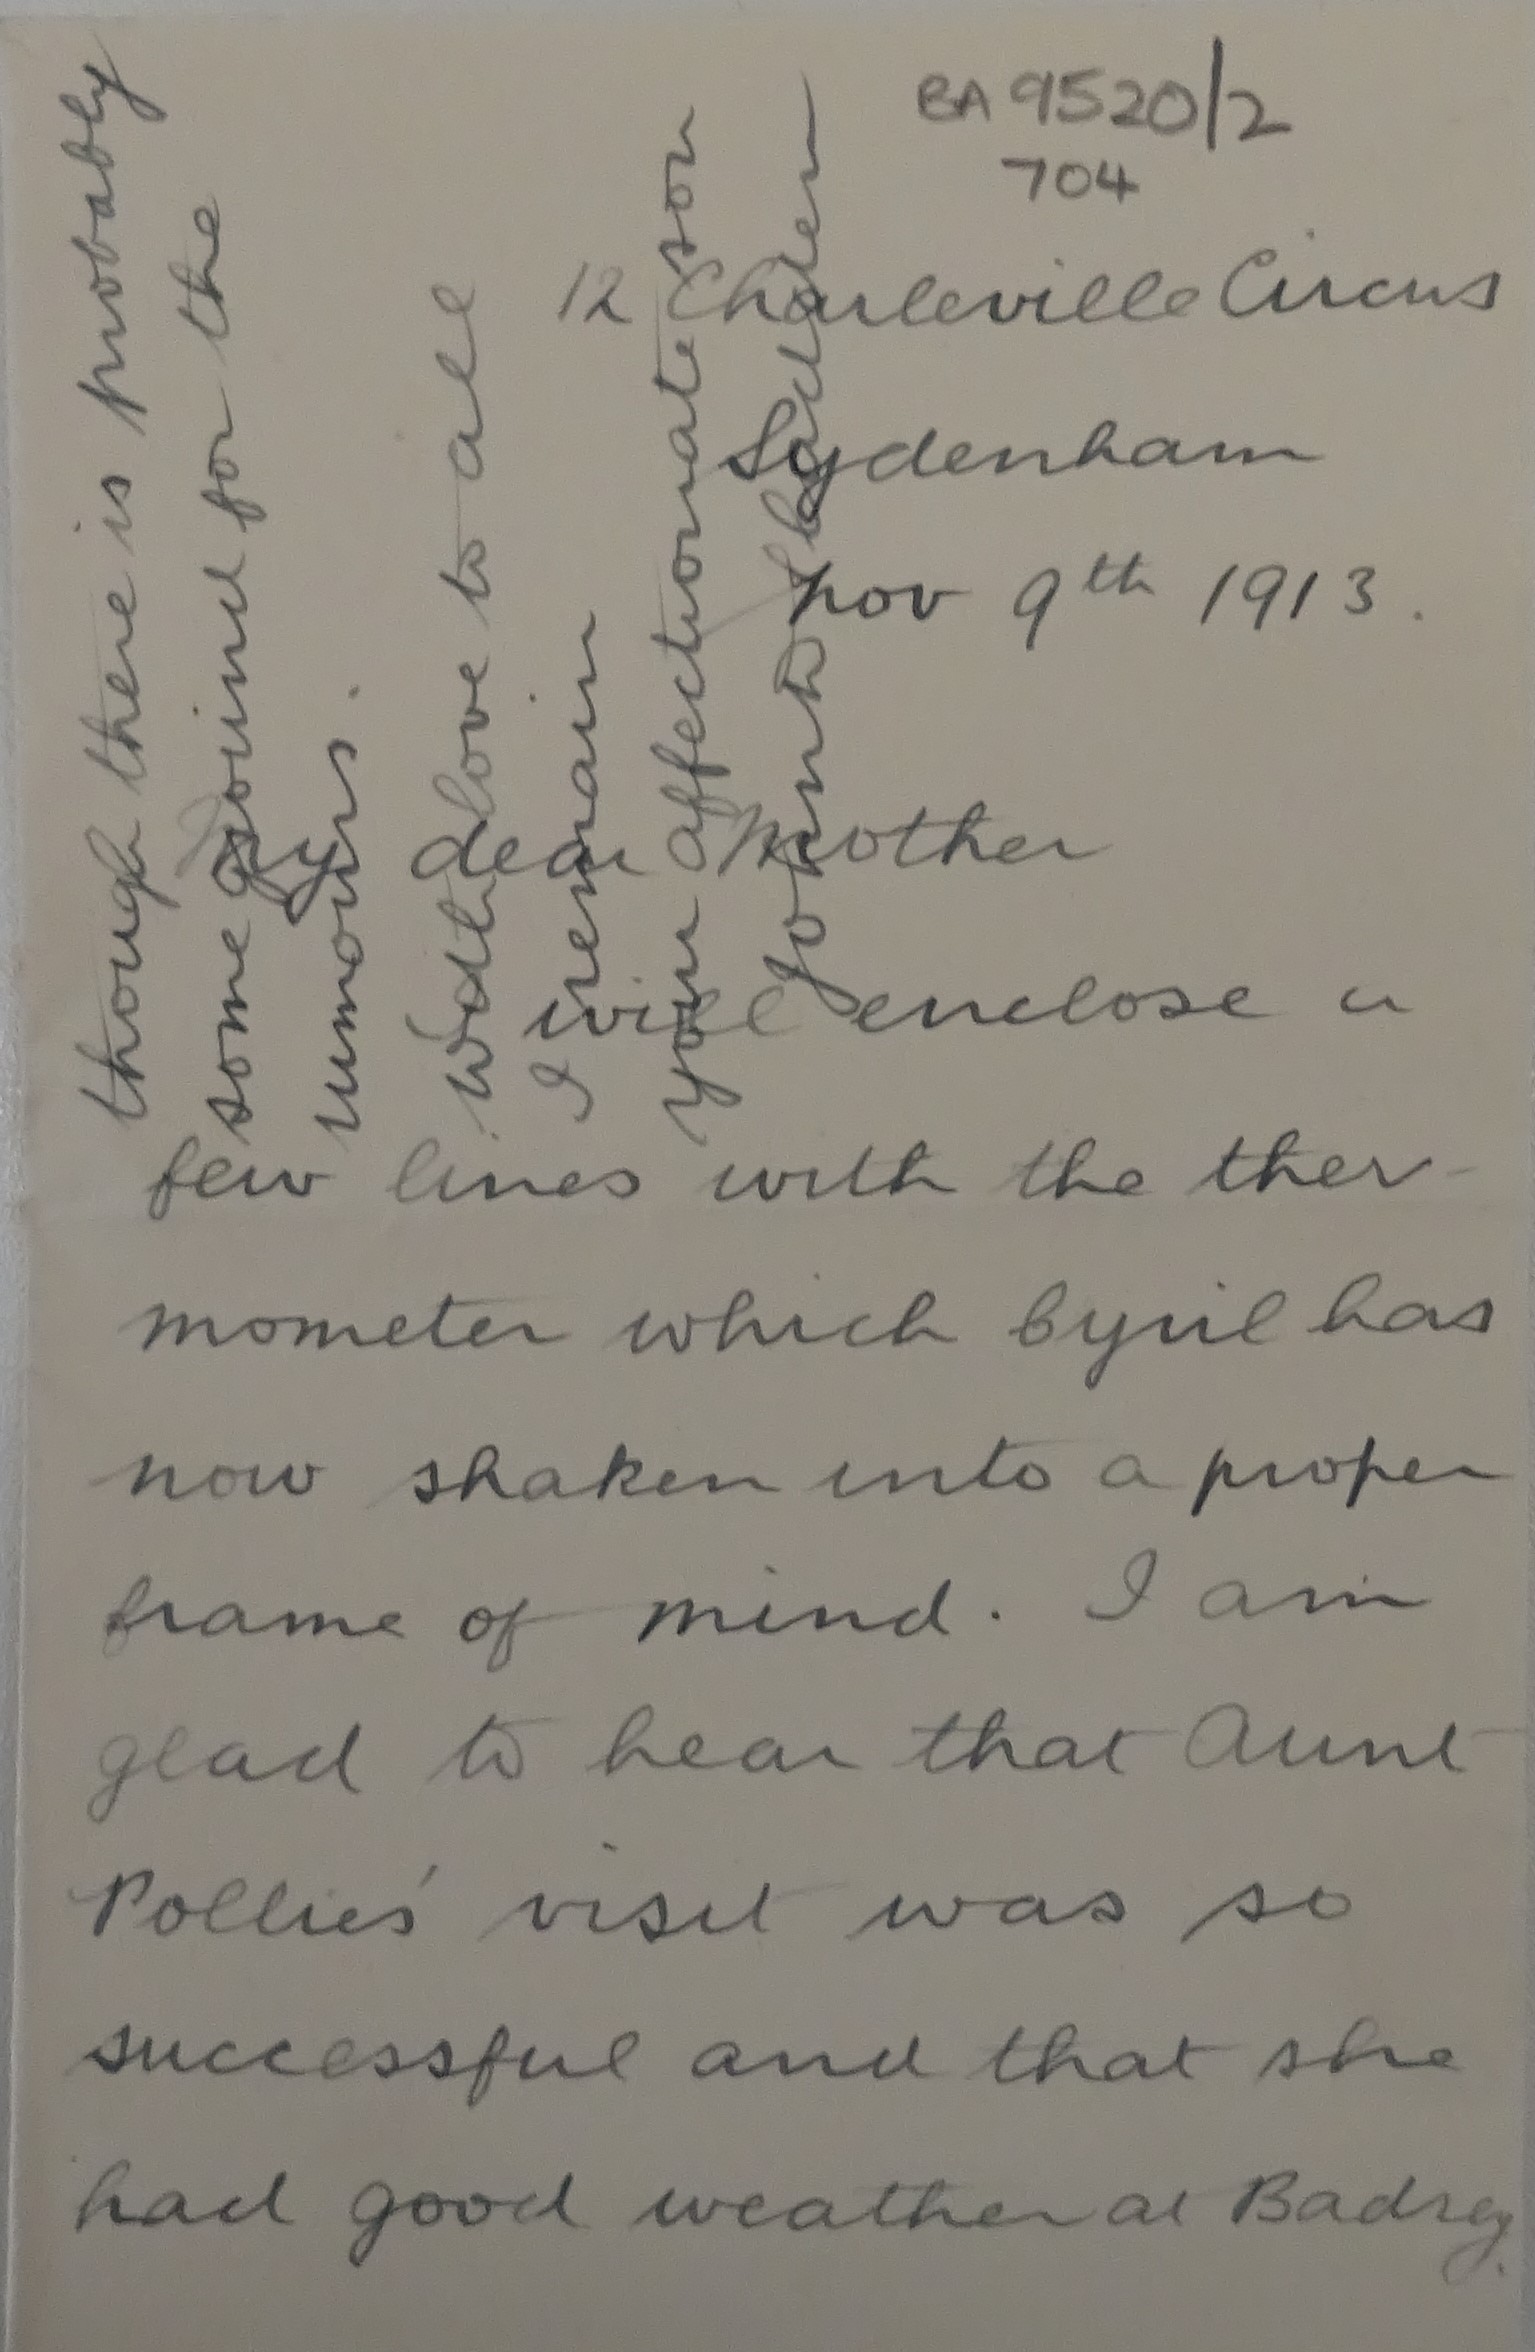 BA 9520/2
704
12 Charleville Circus
Sydenham
Nov 9th 1913.
My dear Mother
I will enclose a
few lines with the ther-
mometer which Cyril has
now shaken into a proper
frame of mind. I am
glad to hear that Aunt
Pollie's visit was so
successful and that she
had good weather at Badsey.
though there is probably
some ground for the
rumours.
With love to all
I remain
your affectionate son